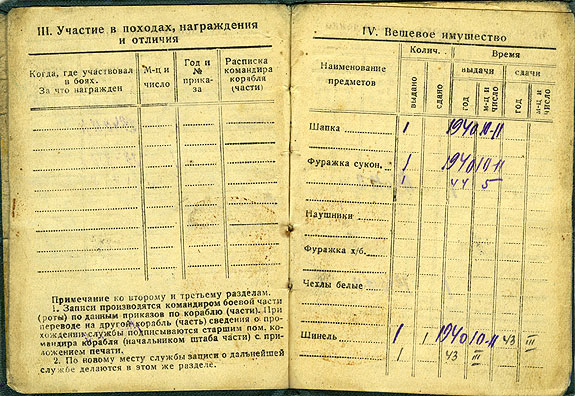 III. Участие в походах, награждения
и отличия
Когда, где участвовал
в боях.
За что награжден
М-ц и
число
Год и
№
прика-
за
Расписка
командира
корабля
(части)
Примечание ко второму и третьему разделам.
1. Записи производятся командиром боевой части
(роты) по данным приказов по кораблю (части). При
переводе на другой корабль (часть) сведения о про-
хождении службы подписываются старшим пом. ко-
мандира корабля (начальником штаба части) с при-
ложением печати.
2. По новому месту службы записи о дальнейшей
службе делаются в этом же разделе.
IV. Вещевое имущество
Наименование
предметов
Колич.
Время
выдано
сдано
выдачи
сдачи
год
м-ц и
число
год
м-ц и
число
Шапка 1 1940 10-11
Фуражка сукон. 1 1940 10-11
1 44 5
Наушники
Фуражка х/б.
Чехлы белые
Шинель 1 1 1940 10-11 43 III
1 43 III